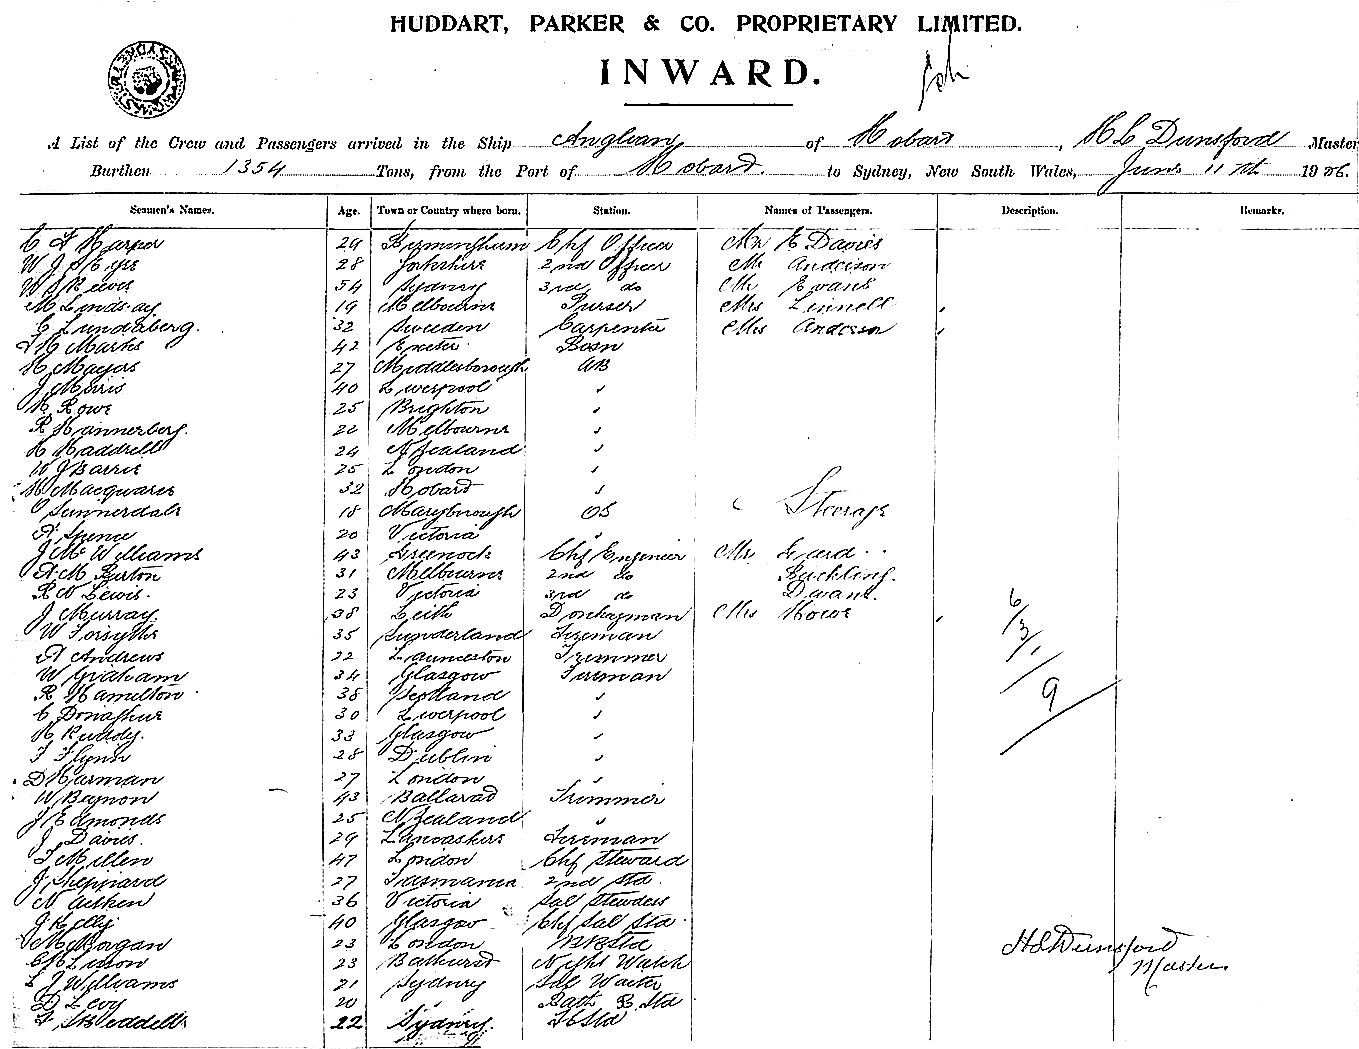 HUDDART, PARKER & CO. PROPRIETARY LIMITED.
INWARD.
A List of the Crew and Passengers arrived in the Ship Anglian of Hobart, H L Dunsford Master
Burthen 1354 Tons, from the Port of Hobart to Sydney, New South Wales, June 11th 1906.
Seamen's Names. Age. Town or Country where born. Station. Names of Passengers. Description. Remarks.
C F Harper 29 Birmingham Chf Officer Mr E Davies
W J S 28 Yorkshire 2nd Officer Mr Anderson
W S Reeves 54 Sydney 3rd do Mr Evans
M Lindsay 19 Melbourne Purser Mrs Linnell
C Lunderberg. 32 Sweden Carpenter Mrs Anderson
H Marks 42 Exeter Bosn
H Mayers 27 Middlesborough AB
J Morris 40 Liverpool "
H Rowe 25 Brighton "
R Hannerberg. 22 Melbourne "
H Haddrell 24 N Zealand "
W J Barrie 25 London "
H Macquarie 32 Hobart "
Sunnerdale 18 Maryborough OS Steerage
A Spence 20 Victoria "
J McWilliams 43 Greenock Chf Engineer Mr
A M Burton 31 Melbourne 2nd do Buckling.
R W Lewis. 23 Victoria 3rd do
J Murray. 38 Leith Donkeyman Mrs Howe
W Forsythe 35 Sunderland Fireman
A Andrews 22 Launceston Trimmer
W Graham 34 Glasgow Fireman
R Hamilton 38 Scotland "
C Donaghue 30 Liverpool "
H Ruddy. 33 Glasgow "
F Flynn 28 Dublin "
D Harman 27 London "
W Bemon 43 Ballarad Trimmer
J Edmonds 25 N Zealand "
J Davies. 29 Lancashire Fireman
F Millen 47 London Chf Steward
J Sheppard 27 Tasmania 2nd Std.
N Aitken 36 Victoria Sal Stewdess
J Kelly 40 Glasgow Chf Sal Std
M Morgan 23 London Std
23 Bathurst Night Watch
L J Williams 21 Sydney Sal Waiter
D Levy 20 " Bath B Std
F Stheddells 22 Sydney. Std
6/3/1
9
H L Dunsford
Master